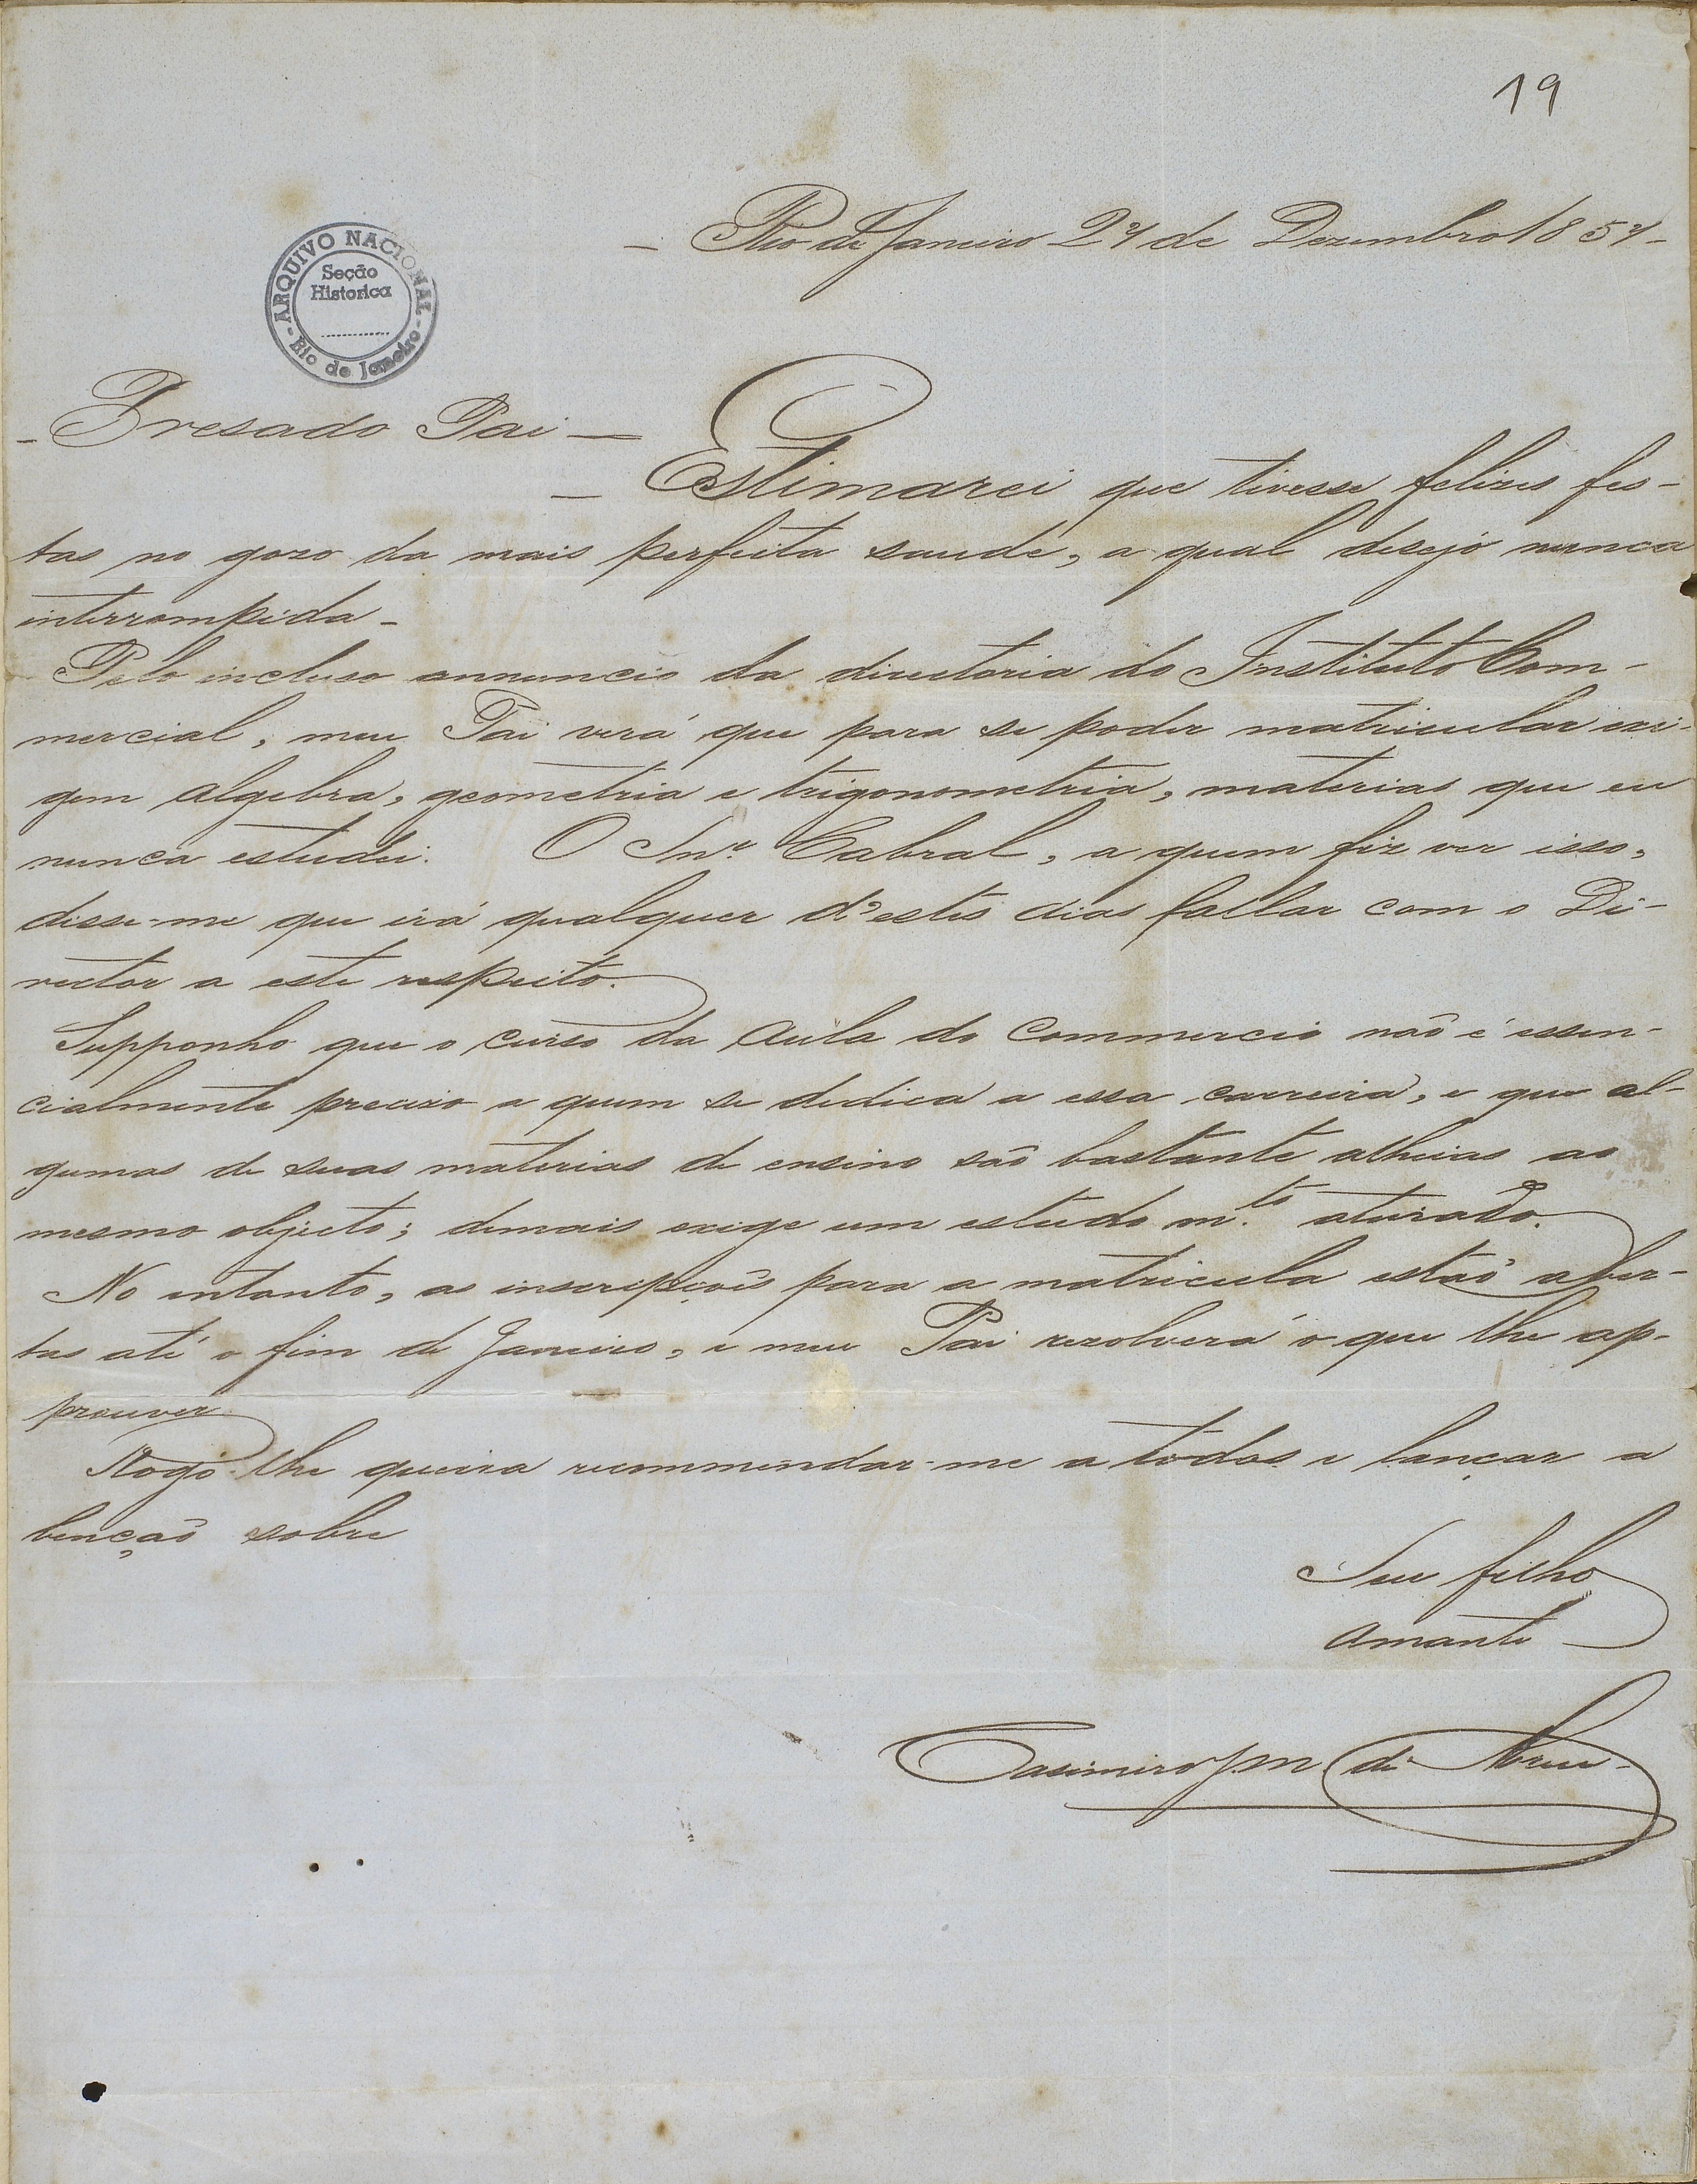 19
- Rio de Janeiro 27 de Dezembro 1857 -
ARQUIVO NACIONAL
Seção
Historica
- Rio de Janeiro -
- Presado Pai -
- Estimarei que tivesse felizes fes-
tas no gozo da mais perfeita saude, a qual desejo nunca
interrompida -
Pelo incluso annuncio da directoria do Instituto Com-
mercial, meu Pai verá que para se poder matricular exi-
gem algebra, geometria e trigonometria, materias que eu
nunca estudei. O Snr. Cabral, a quem fiz ver isso,
disse-me que irá qualquer d'estes dias fallar com o Di-
rector a este respeito.
Supponho que o curso da Aula do Commercio não é essen-
cialmente preciso a quem se dedica a essa carreira, e que al-
gumas de suas materias de ensino são bastante alheias ao
mesmo objecto; demais exige um estudo m.to aturado.
No entanto, as inscripções para a matricula estão aber-
tas até o fim de Janeiro, e meu Pai resolverá o que lhe ap-
prouver
Rogo-lhe queira recommendar-me a todos e lançar a
benção sobre
Seu filho
amante
Casimiro J. M. de Abreu -